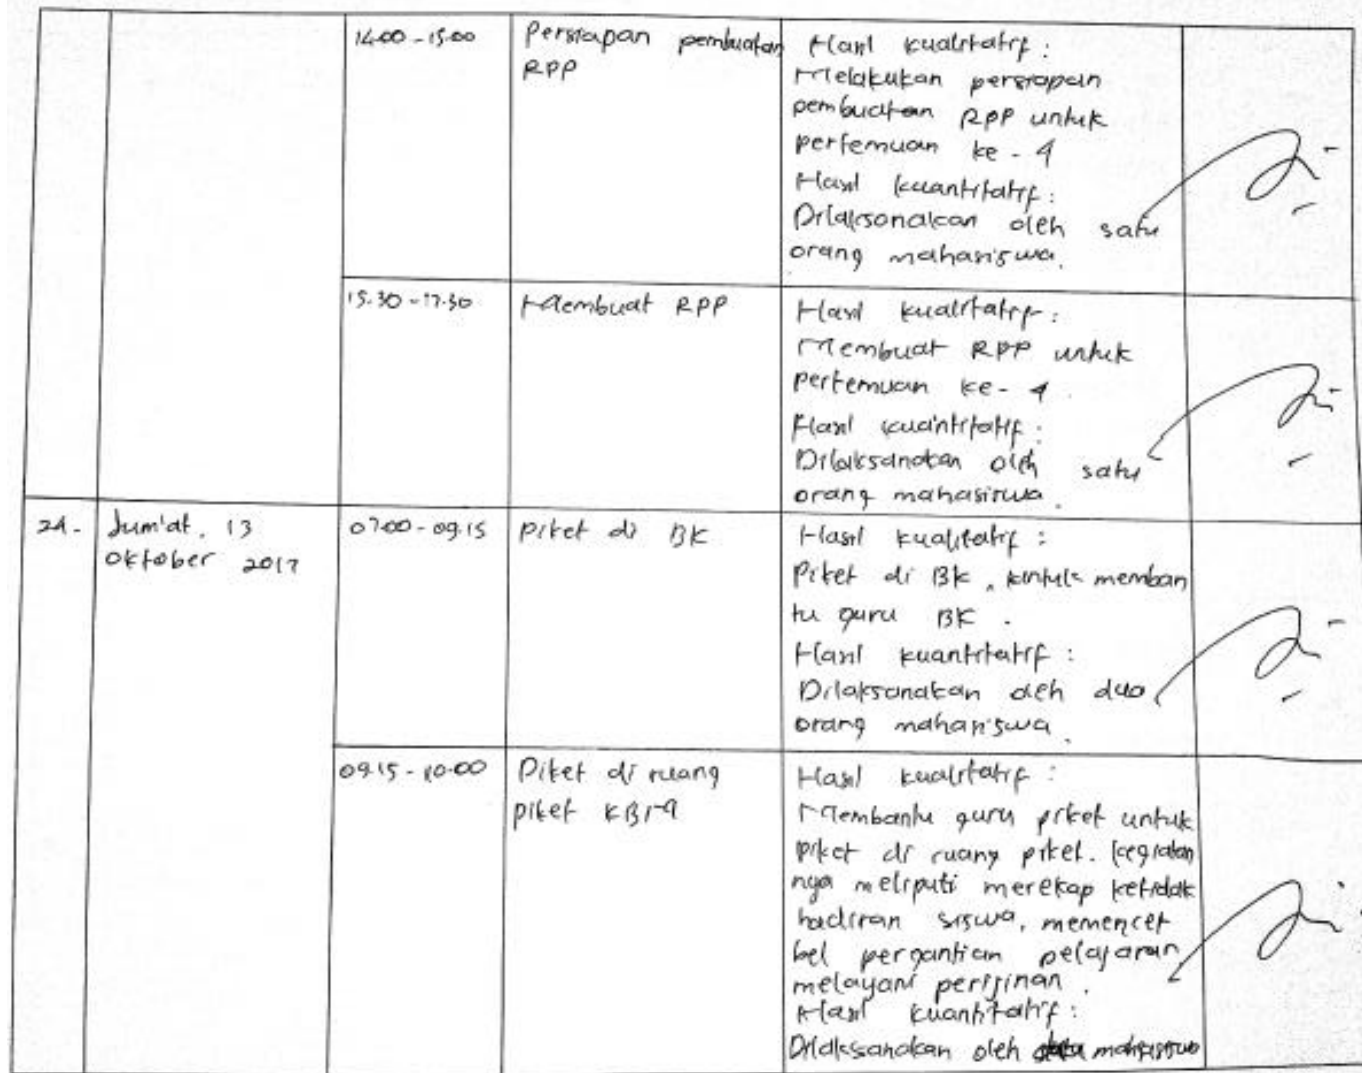 14.00 - 15.00
Persiapan pembuatan
RPP
Hasil kualitatif :
Melakukan persiapan
pembuatan RPP untuk
pertemuan ke - 4
Hasil kuantitatif :
Dilaksanakan oleh satu
orang mahasiswa.
15.30 - 17.30
Membuat RPP
Hasil kualitatif :
Membuat RPP untuk
pertemuan ke - 4
Hasil kuantitatif :
Dilaksanakan oleh satu
orang mahasiswa.
24.
Jum'at, 13
Oktober 2017
07.00 - 09.15
Piket di BK
Hasil kualitatif :
Piket di BK, untuk memban
tu guru BK .
Hasil kuantitatif :
Dilaksanakan oleh dua
orang mahasiswa.
09.15 - 10.00
Piket di ruang
piket
Hasil kualitatif :
Membantu guru piket untuk
piket di ruang piket. kegiatan
nya meliputi merekap ketidak
hadiran siswa, memencet
bel pergantian pelajaran
melayani perijinan .
Hasil kuantitatif :
Dilaksanakan oleh mahasiswa